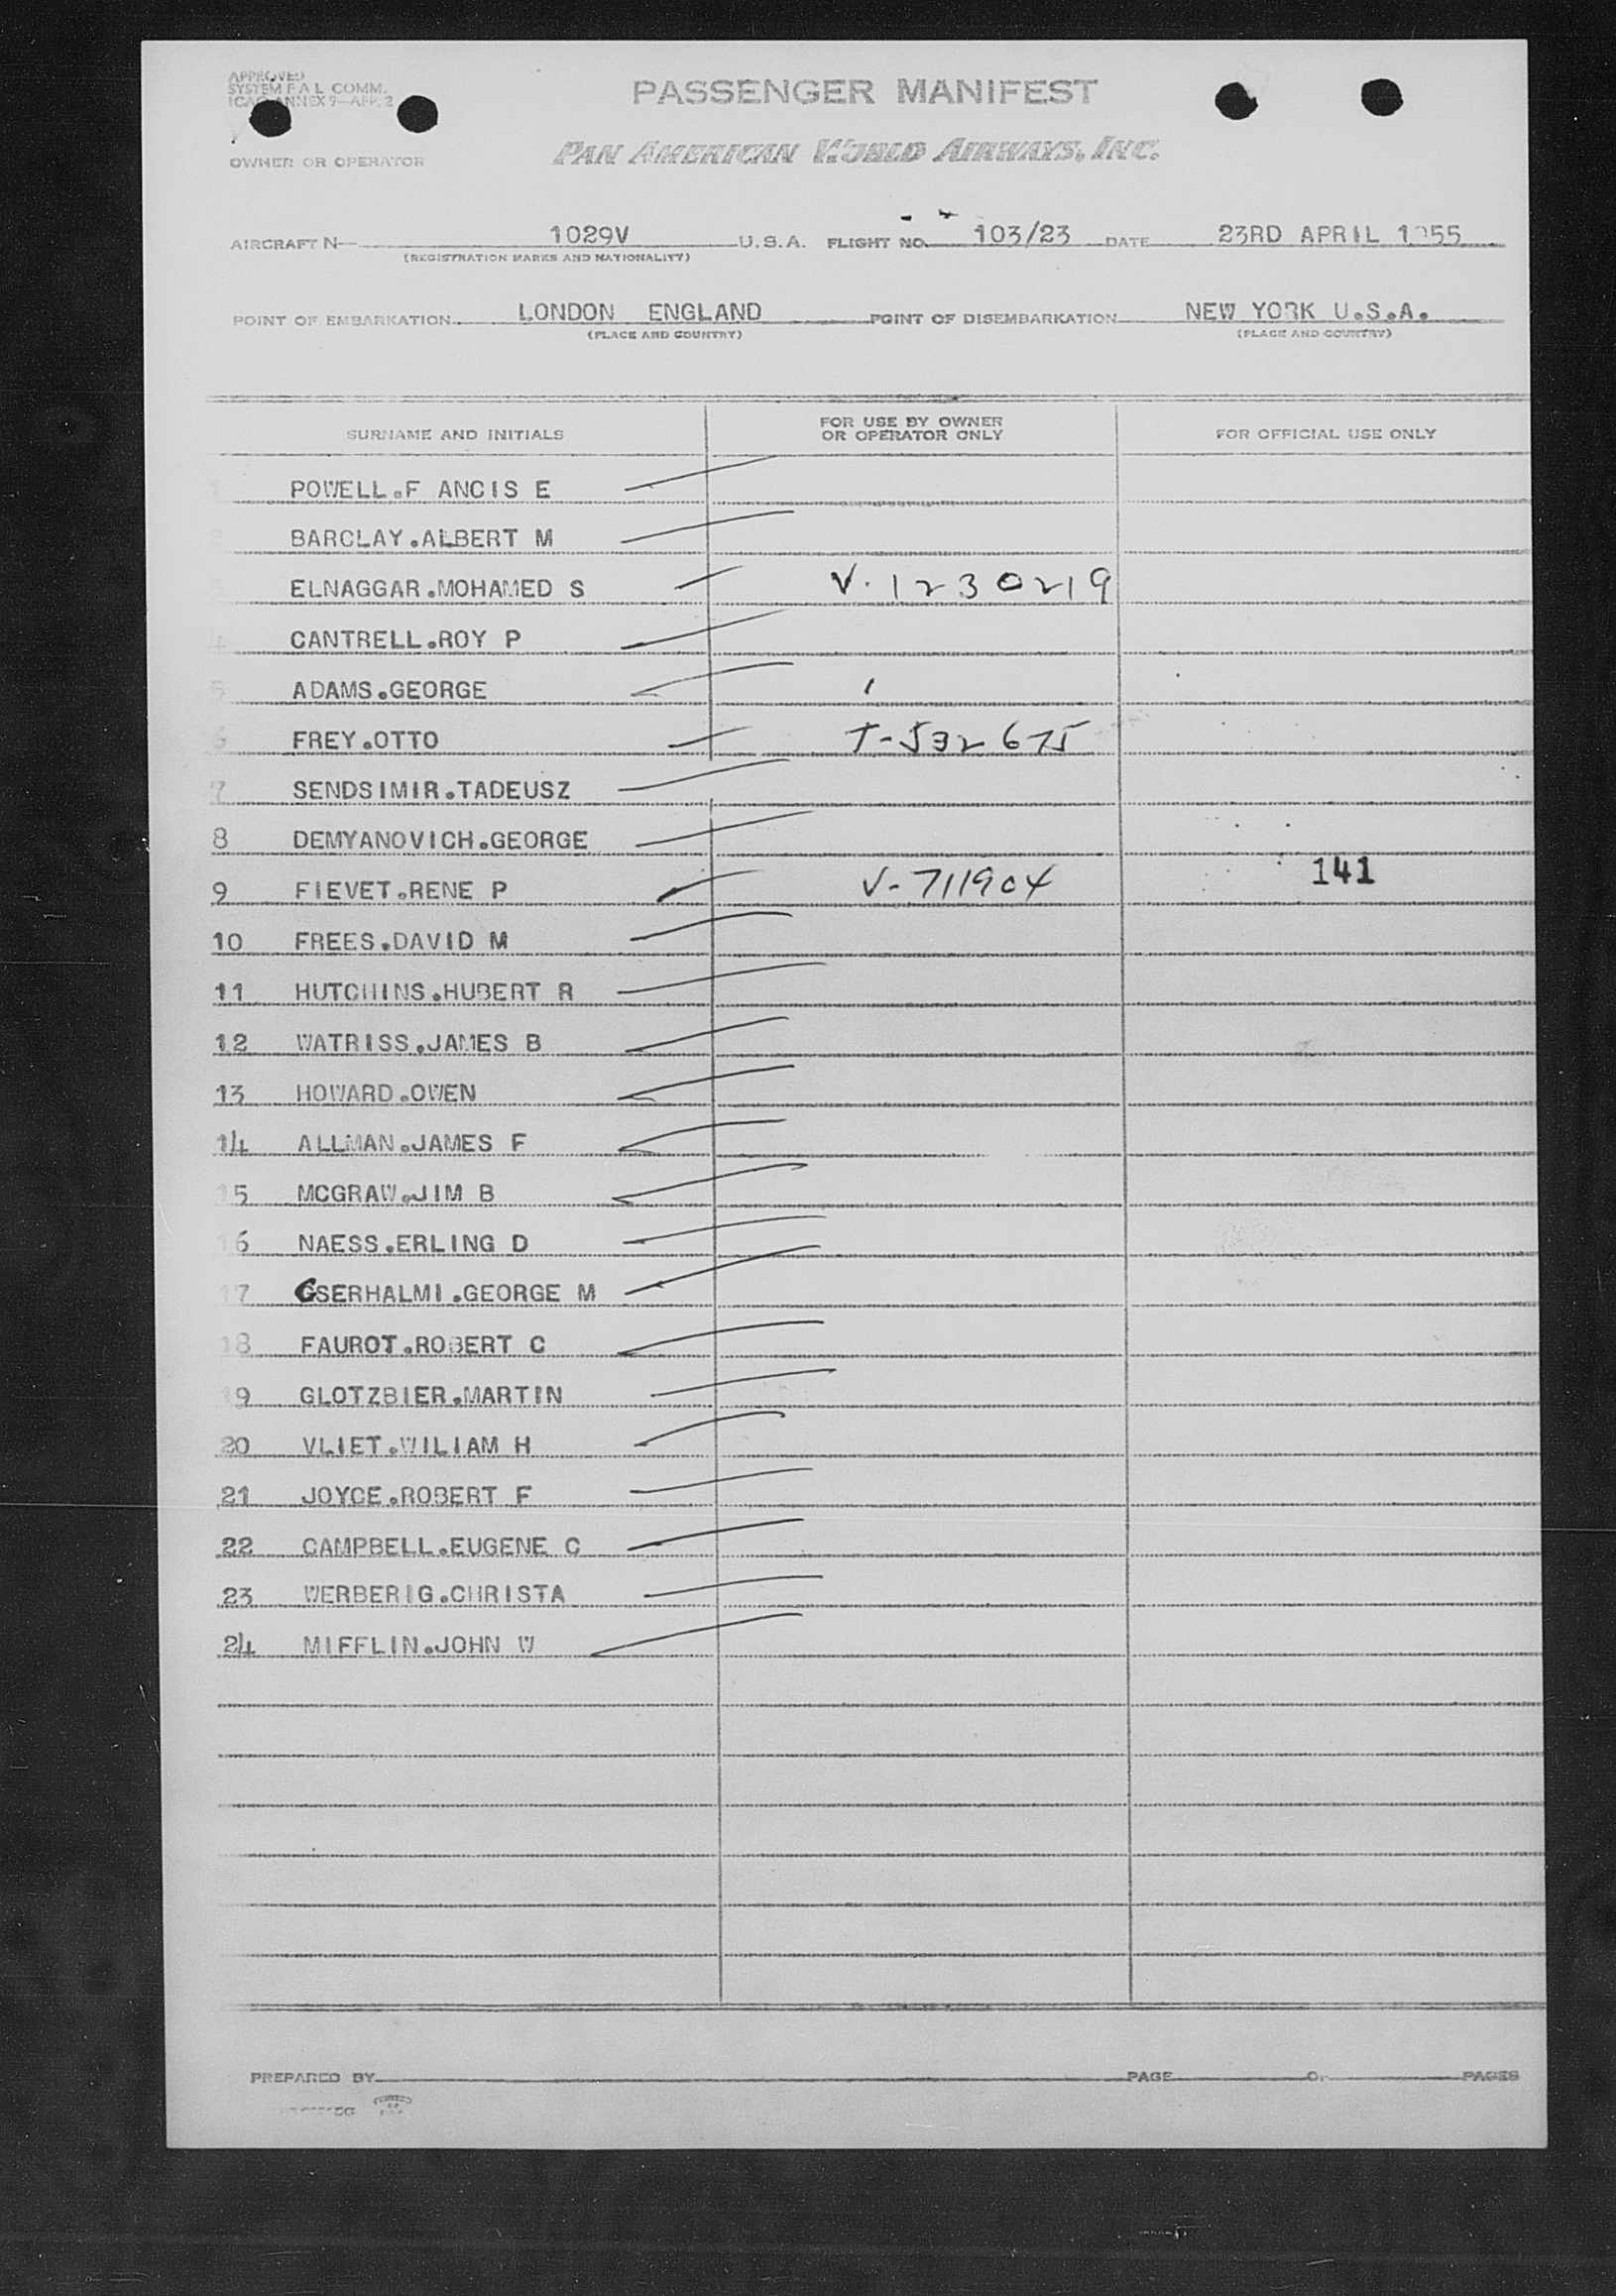 APPROVED
SYSTEM F A L COMM.
ICAO ANNEX 9—APP. 2
PASSENGER MANIFEST
OWNER OR OPERATOR PAN AMERICAN WORLD AIRWAYS, INC.
AIRCRAFT N— 1029V U.S.A. FLIGHT NO. 103/23 DATE 23RD APRIL 1955
(REGISTRATION MARKS AND NATIONALITY)
POINT OF EMBARKATION LONDON ENGLAND POINT OF DISEMBARKATION NEW YORK U.S.A.
(PLACE AND COUNTRY) (PLACE AND COUNTRY)
SURNAME AND INITIALS FOR USE BY OWNER OR OPERATOR ONLY FOR OFFICIAL USE ONLY
POWELL.F ANCIS E
BARCLAY.ALBERT M
ELNAGGAR.MOHAMED S V. 1230219
4 CANTRELL.ROY P
5 ADAMS.GEORGE
6 FREY.OTTO T-532675
7 SENDSIMIR.TADEUSZ
8 DEMYANOVICH.GEORGE
9 FIEVET.RENE P V-711904 141
10 FREES.DAVID M
11 HUTCHINS.HUBERT R
12 WATRISS.JAMES B
13 HOWARD.OWEN
14 ALLMAN.JAMES F
15 MCGRAW.JIM B
16 NAESS.ERLING D
17 CSERHALMI.GEORGE M
18 FAUROT.ROBERT C
19 GLOTZBIER.MARTIN
20 VLIET.WILIAM H
21 JOYCE.ROBERT F
22 CAMPBELL.EUGENE C
23 WERBERIG.CHRISTA
24 MIFFLIN.JOHN W
PREPARED BY PAGE OF PAGES